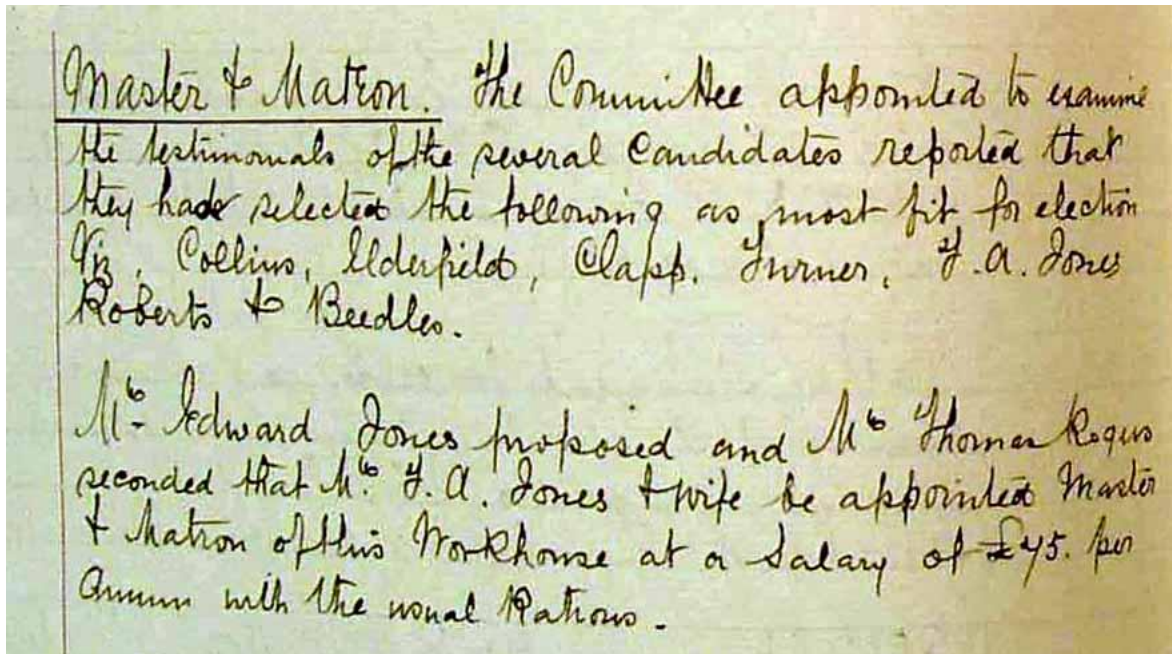 Master & Matron. The Committee appointed to examine
the testimonials of the several Candidates reported that
they had selected the following as most fit for election
Viz, Collins, Elderfield, Clapp. Turner, F.A. Jones
Roberts & Beedles.
Mr Edward Jones proposed and Mr Thomas Rogers
seconded that Mr F. A. Jones & wife be appointed Master
& Matron of this Workhouse at a Salary of £75. per
Annum with the usual Rations.